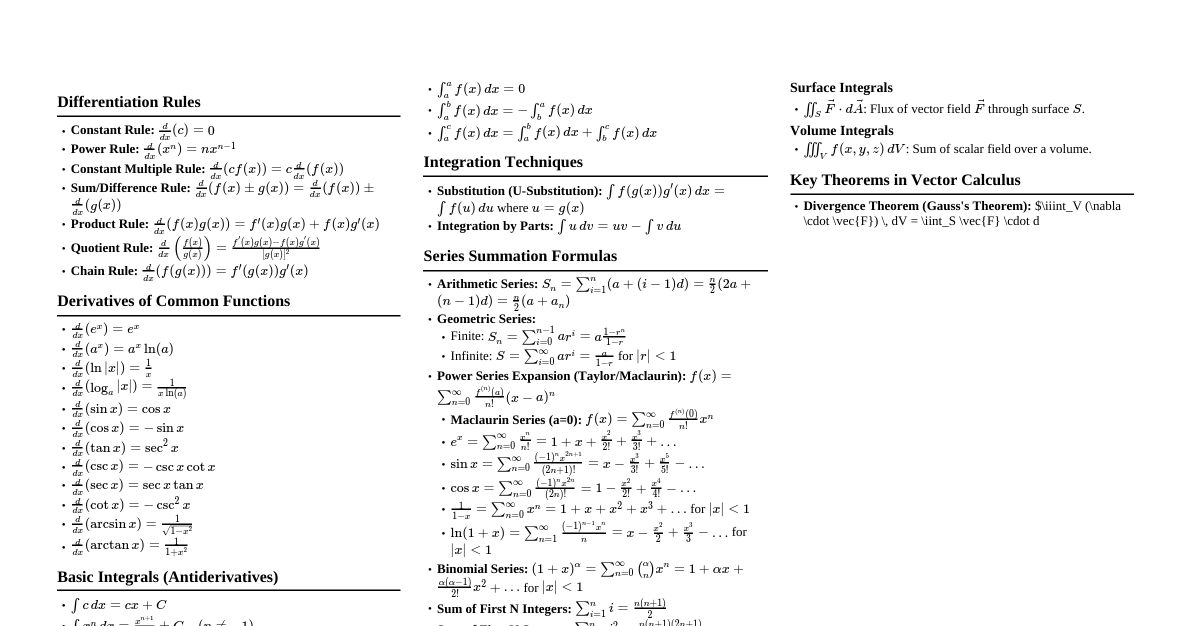 Differentiation Rules
• Constant Rule: $\frac{d}{dx}(c) = 0$
• Power Rule: $\frac{d}{dx}(x^n) = nx^{n-1}$
• Constant Multiple Rule: $\frac{d}{dx}(cf(x)) = c\frac{d}{dx}(f(x))$
• Sum/Difference Rule: $\frac{d}{dx}(f(x) \pm g(x)) = \frac{d}{dx}(f(x)) \pm$
$\frac{d}{dx}(g(x))$
• Product Rule: $\frac{d}{dx}(f(x)g(x)) = f'(x)g(x) + f(x)g'(x)$
• Quotient Rule: $\frac{d}{dx}\left(\frac{f(x)}{g(x)}\right) = \frac{f'(x)g(x)-f(x)g'(x)}{[g(x)]^2}$
• Chain Rule: $\frac{d}{dx}(f(g(x))) = f'(g(x))g'(x)$
Derivatives of Common Functions
• $\frac{d}{dx}(e^x) = e^x$
• $\frac{d}{dx}(a^x) = a^x \ln(a)$
• $\frac{d}{dx}(\ln|x|) = \frac{1}{x}$
• $\frac{d}{dx}(\log_a|x|) = \frac{1}{x\ln(a)}$
• $\frac{d}{dx}(\sin x) = \cos x$
• $\frac{d}{dx}(\cos x) = -\sin x$
• $\frac{d}{dx}(\tan x) = \sec^2 x$
• $\frac{d}{dx}(\csc x) = -\csc x \cot x$
• $\frac{d}{dx}(\sec x) = \sec x \tan x$
• $\frac{d}{dx}(\cot x) = -\csc^2 x$
• $\frac{d}{dx}(\arcsin x) = \frac{1}{\sqrt{1-x^2}}$
• $\frac{d}{dx}(\arctan x) = \frac{1}{1+x^2}$
Basic Integrals (Antiderivatives)
• $\int c\,dx = cx + C$
• $\int x^n\,dx = \frac{x^{n+1}}{}+ C \quad (n \neq -1)$
• $\int_a^a f(x)\,dx = 0$
• $\int_a^b f(x)\,dx = -\int_b^a f(x)\,dx$
• $\int_a^c f(x)\,dx = \int_a^b f(x)\,dx + \int_b^c f(x)\,dx$
Integration Techniques
• Substitution (U-Substitution): $\int f(g(x))g'(x)\,dx =$
$\int f(u)\,du$ where $u = g(x)$
• Integration by Parts: $\int u\,dv = uv - \int v\,du$
Series Summation Formulas
• Arithmetic Series: $S_n = \sum_{i=1}^n (a + (i-1)d) = \frac{n}{2}(2a +$
$(n-1)d) = \frac{n}{2}(a + a_n)$
• Geometric Series:
• Finite: $S_n = \sum_{i=0}^{n-1} ar^i = a\frac{1-r^n}{1-r}$
• Infinite: $S = \sum_{i=0}^\infty ar^i = \frac{a}{1-r}$ for $|r| < 1$
• Power Series Expansion (Taylor/Maclaurin): $f(x) =$
$\sum_{n=0}^\infty \frac{f^{(n)}(a)}{n!}(x-a)^n$
• Maclaurin Series (a=0): $f(x) = \sum_{n=0}^\infty \frac{f^{(n)}(0)}{n!}x^n$
• $e^x = \sum_{n=0}^\infty \frac{x^n}{n!} = 1 + x + \frac{x^2}{2!} + \frac{x^3}{3!} + \dots$
• $\sin x = \sum_{n=0}^\infty \frac{(-1)^n x^{2n+1}}{(2n+1)!} = x - \frac{x^3}{3!} + \frac{x^5}{5!} - \dots$
• $\cos x = \sum_{n=0}^\infty \frac{(-1)^n x^{2n}}{(2n)!} = 1 - \frac{x^2}{2!} + \frac{x^4}{4!} - \dots$
• $\frac{1}{1-x} = \sum_{n=0}^\infty x^n = 1 + x + x^2 + x^3 + \dots$ for $|x| < 1$
• $\ln(1+x) = \sum_{n=1}^\infty \frac{(-1)^{n-1}x^n}{n} = x - \frac{x^2}{2} + \frac{x^3}{3} - \dots$ for
$|x| < 1$
• Binomial Series: $(1+x)^\alpha = \sum_{n=0}^\infty \binom{\alpha}{n}x^n = 1 + \alpha x +$
$\frac{\alpha(\alpha-1)}{2!}x^2 + \dots$ for $|x| < 1$
• Sum of First N Integers: $\sum_{i=1}^n i = \frac{n(n+1)}{2}$
Surface Integrals
• $\iint_S \vec{F} \cdot d\vec{A}$: Flux of vector field $\vec{F}$ through surface $S$.
Volume Integrals
• $\iiint_V f(x, y, z)\,dV$: Sum of scalar field over a volume.
Key Theorems in Vector Calculus
• Divergence Theorem (Gauss's Theorem): $\iiint_V (\nabla
\cdot \vec{F}) \, dV = \iint_S \vec{F} \cdot d